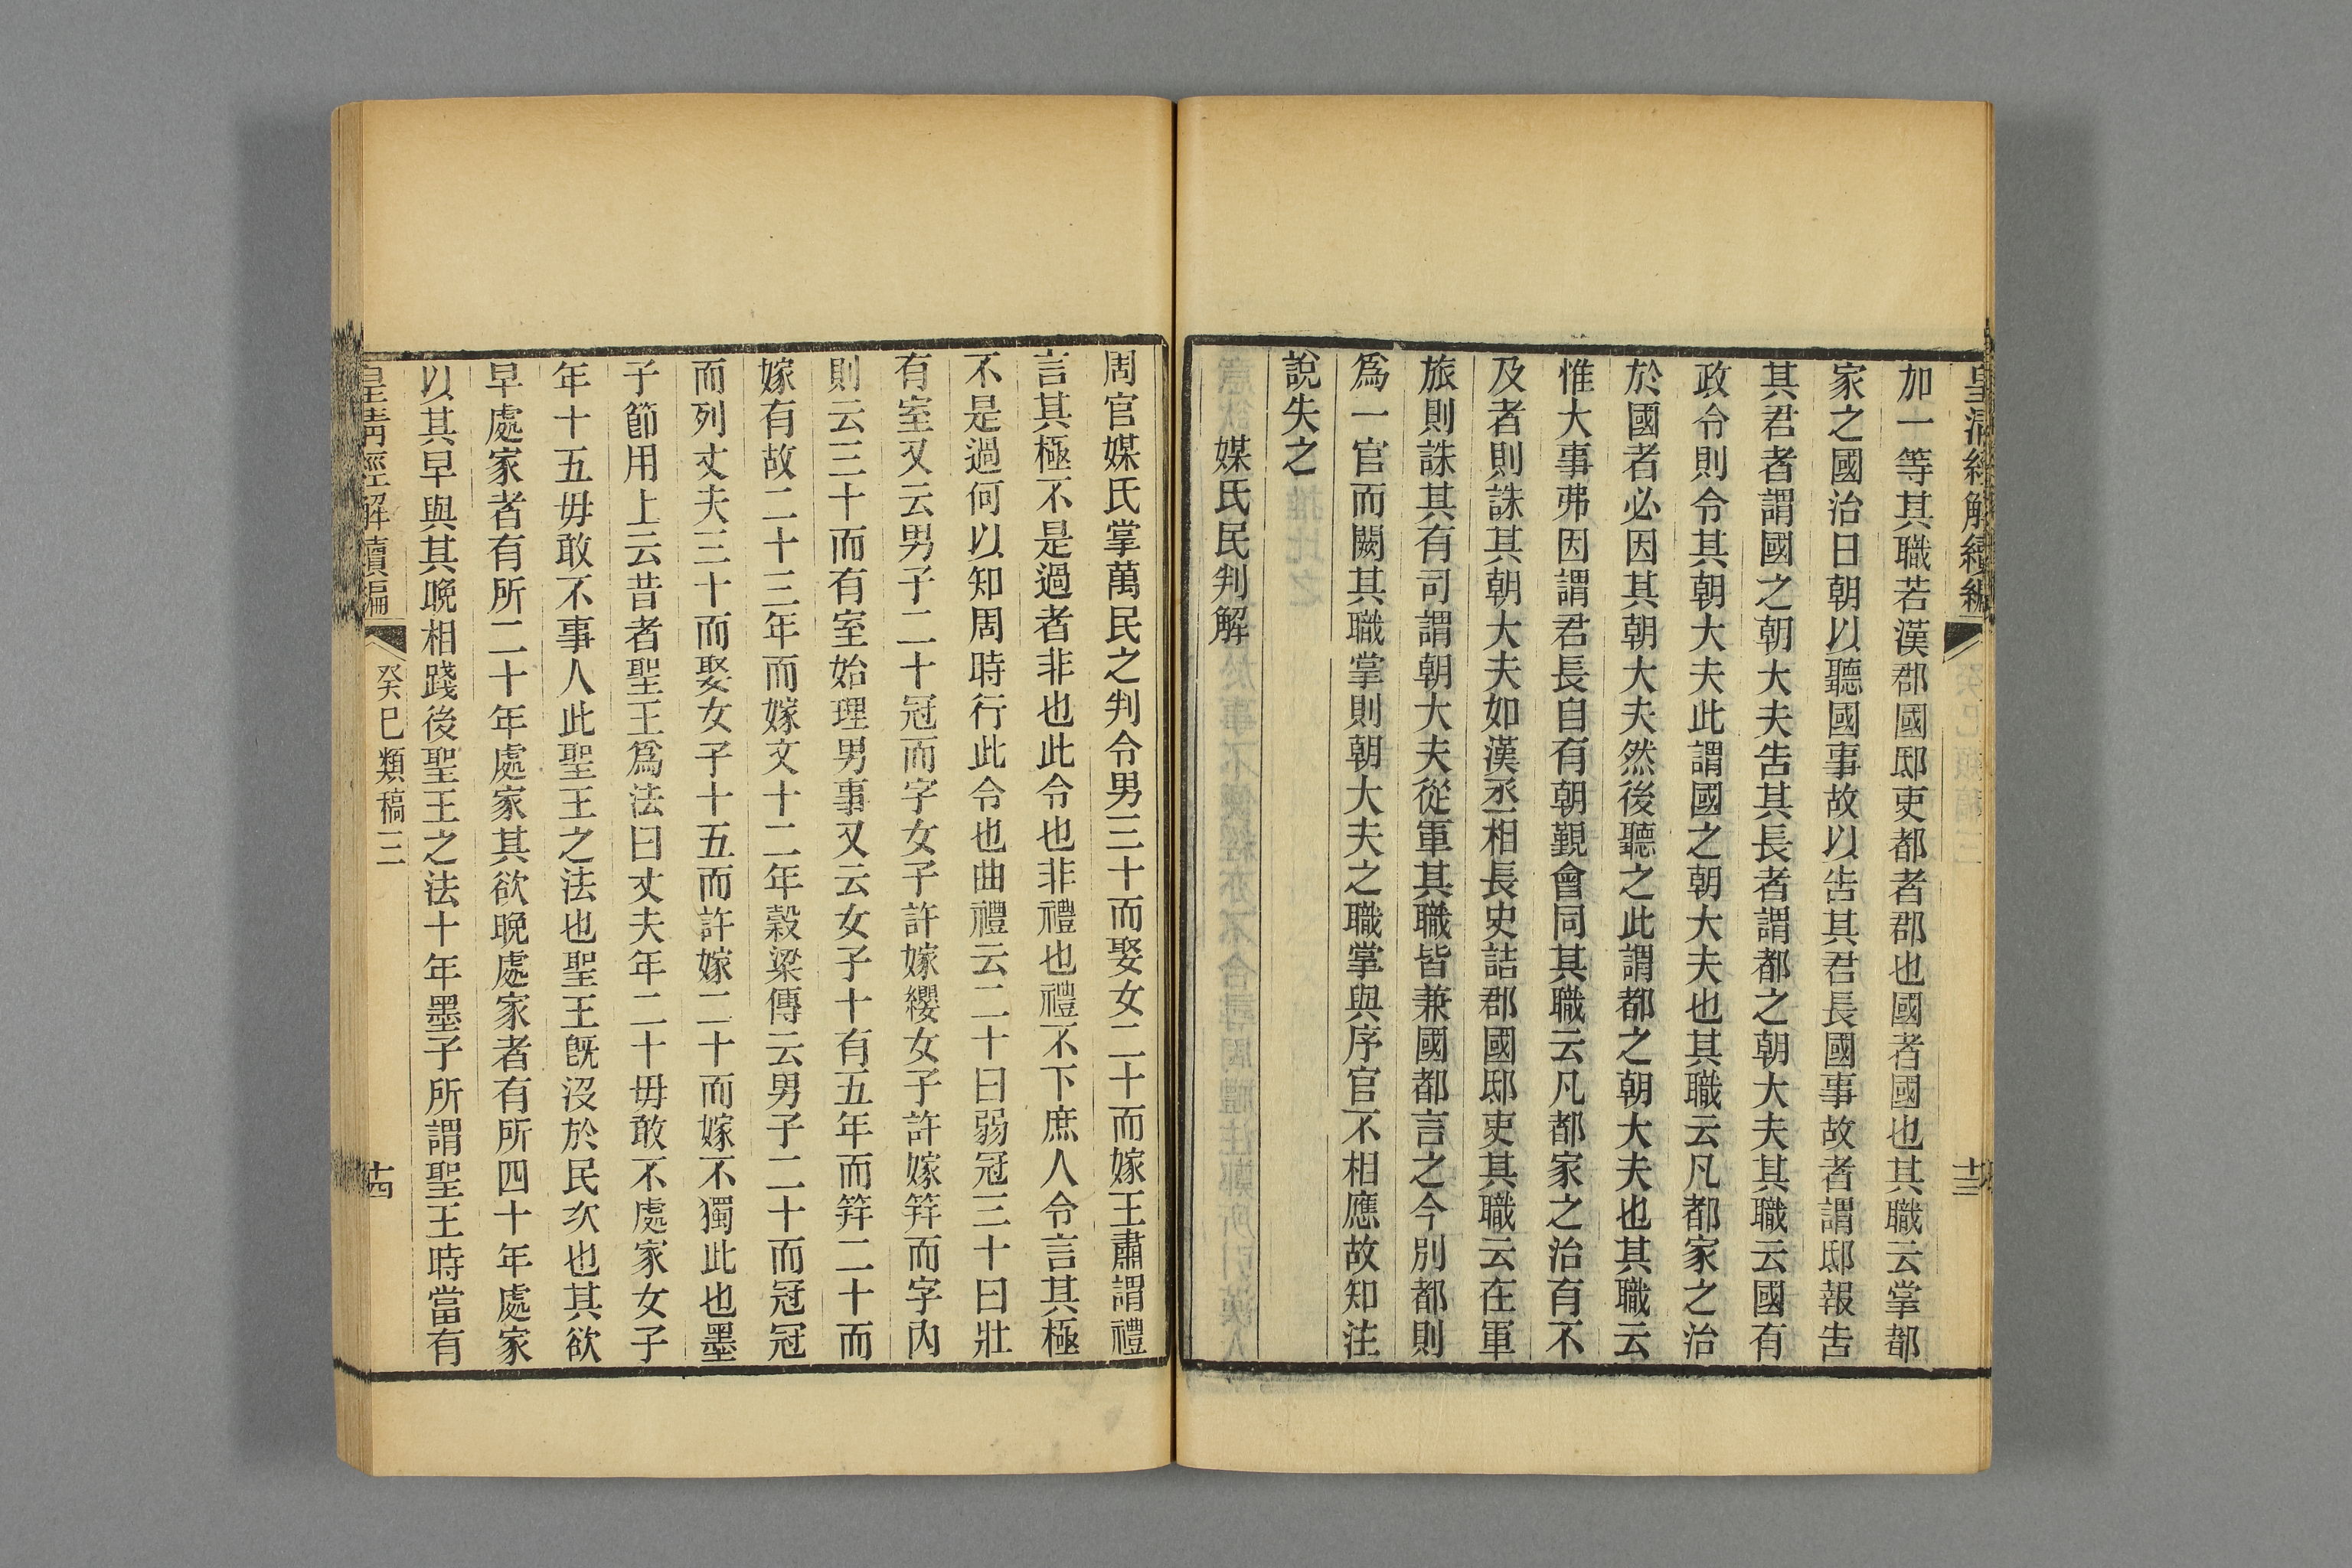 皇清經解續編
十三
加一等其職若漢郡國邸吏都者郡也國者國也其職云掌都
家之國治日朝以聽國事故以告其君長國事故者謂邸報告
其君者謂國之朝大夫告其長者謂都之朝大夫其職云國有
政令則令其朝大夫此謂國之朝大夫也其職云凡都家之治
於國者必因其朝大夫然後聽之此謂都之朝大夫也其職云
惟大事弗因謂君長自有朝覲會同其職云凡都家之治有不
及者則誅其朝大夫如漢丞相長史詰郡國邸吏其職云在軍
旅則誅其有司謂朝大夫從軍其職皆兼國都言之今別都則
爲一官而闕其職掌則朝大夫之職掌與序官不相應故知注
說失之
媒氏民判解
周官媒氏掌萬民之判令男三十而娶女二十而嫁王肅謂禮
言其極不是過者非也此令也非禮也禮不下庶人令言其極
不是過何以知周時行此令也曲禮云二十曰弱冠三十曰壯
有室又云男子二十冠而字女子許嫁纓女子許嫁筓而字內
則云三十而有室始理男事又云女子十有五年而筓二十而
嫁有故二十三年而嫁文十二年穀梁傳云男子二十而冠冠
而列丈夫三十而娶女子十五而許嫁二十而嫁不獨此也墨
子節用上云昔者聖王爲法曰丈夫年二十毋敢不處家女子
年十五毋敢不事人此聖王之法也聖王旣沒於民次也其欲
早處家者有所二十年處家其欲晚處家者有所四十年處家
以其早與其晚相踐後聖王之法十年墨子所謂聖王時當有
皇清經解續編
癸巳類稿三
十四